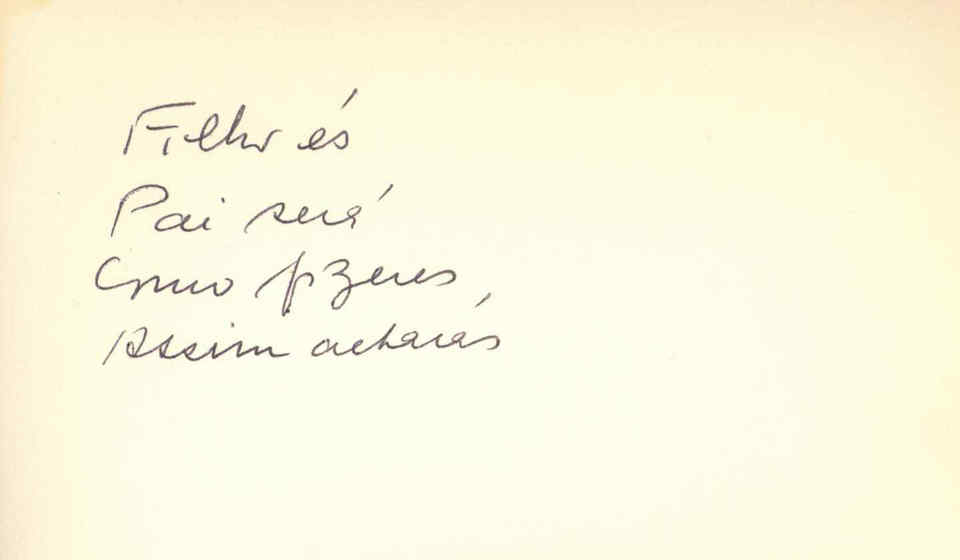 Filho és
Pai será
Como fizeres
Assim acharás